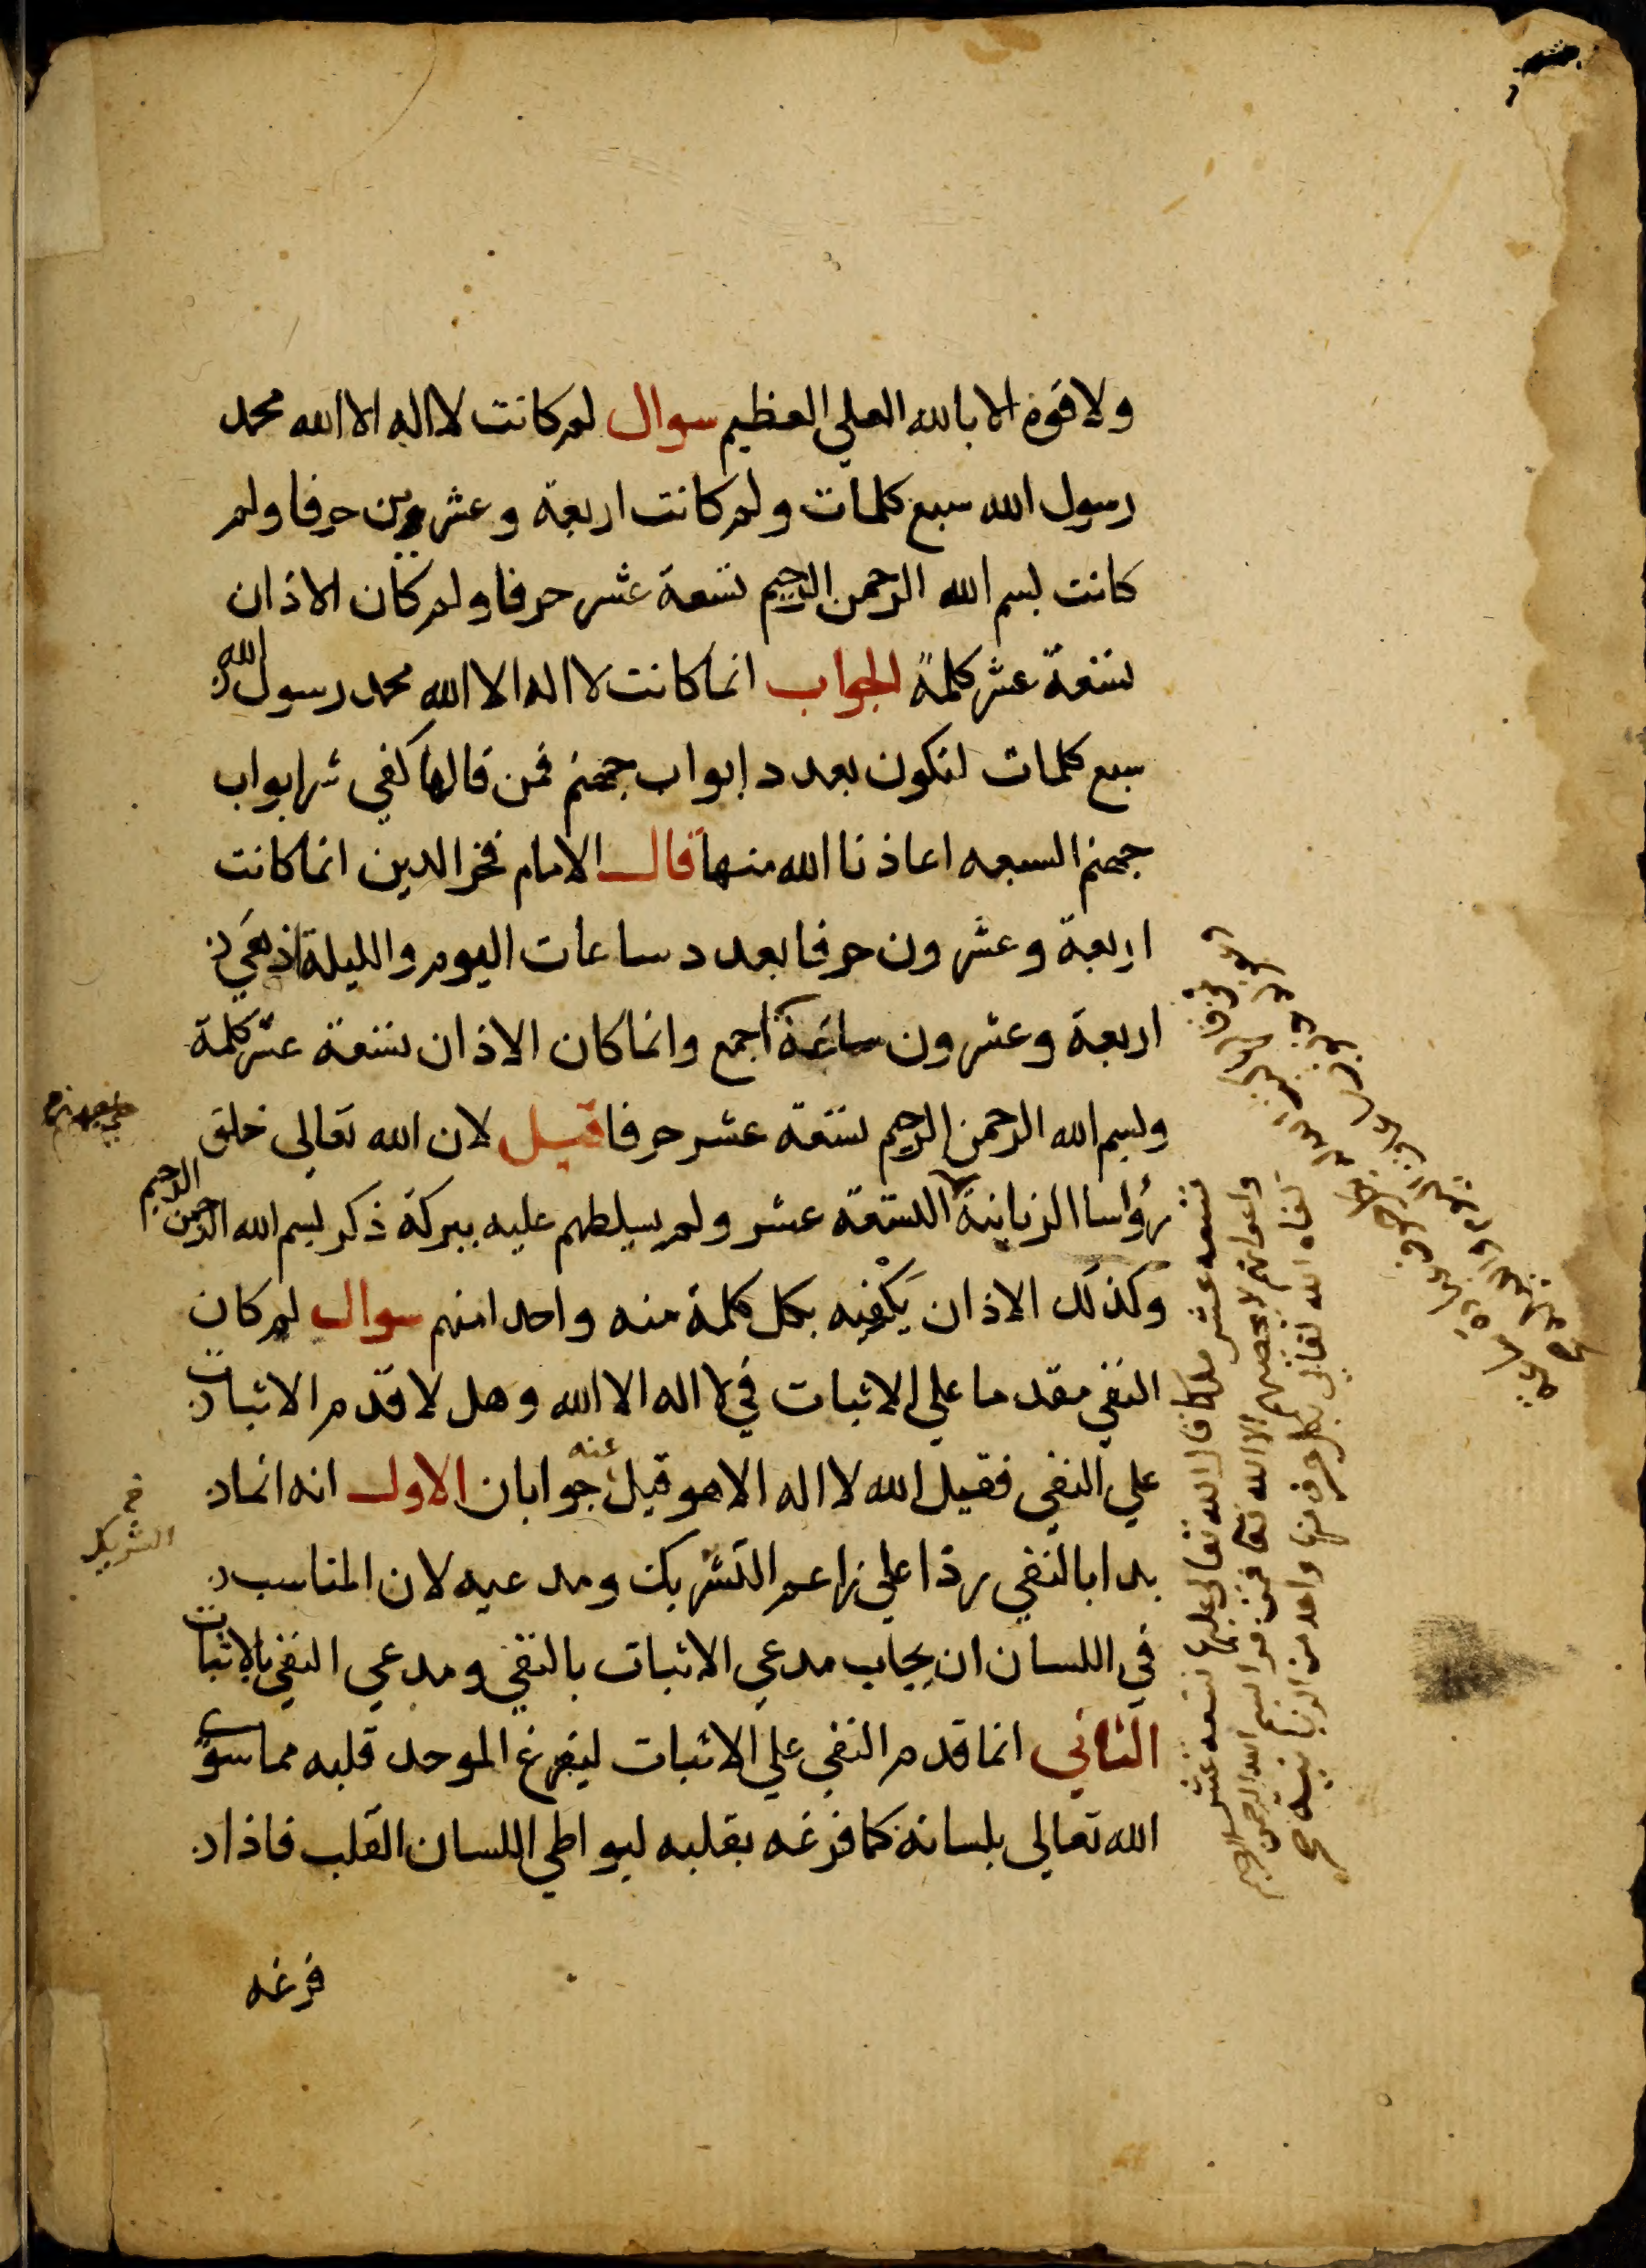 ولا قوة الا بالله العلي العظيم سوال لم كانت لا اله الا الله محمد
رسول الله سبع كلمات ولم كانت اربعة وعشرين حرفا ولم
كانت بسم الله الرحمن الرحيم تسعة عشر حرفا ولم كان الاذان
تسعة عشر كلمة الجواب انما كانت لا اله الا الله محمد رسول الله
سبع كلمات لتكون بعدد ابواب جهنم فمن قالها كفي شر ابواب
جهنم السبعه اعاذنا الله منها قال الامام فخر الدين انما كانت
اربعة وعشرون حرفا بعدد ساعات اليوم والليلة اذ هي
اربعة وعشرون ساعة اجمع وانما كان الاذان تسعة عشر كلمة
وبسم الله الرحمن الرحيم تسعة عشر حرفا قيل لان الله تعالى خلق
رؤاسا الزبانية التسعة عشر ولم يسلطهم عليه ببركة ذكر بسم الله الرحمن الرحيم
وكذلك الاذان يكفيه بكل كلمة منه واحدا منهم سوال لم كان
النفي مقدما علي الاثبات في لا اله الا الله وهل لا قدم الاثبات
علي النفي فقيل الله لا اله الا هو قيل عنه جوابان الاول انه انما
بدا بالنفي ردا علي زاعم التشريك ومدعيه لان المناسب
في اللسان ان يجاب مدعي الاثبات بالنفي ومدعي النفي بالاثبات
الثاني انما قدم النفي علي الاثبات ليفرغ الموحد قلبه مما سوى
الله تعالى بلسانه كما فرغه بقلبه ليواطي اللسان القلب فاذا
فرغه
الشريك
تسعه عشر ملكا قال الله تعالى عليها تسعه عشر
واعوانهم لا يحصيهم الا الله تعا فمن قرا بسم الله الرحمن الرحيم
كفاه الله تعالى بكل حرف منها واحد من الزبانيه